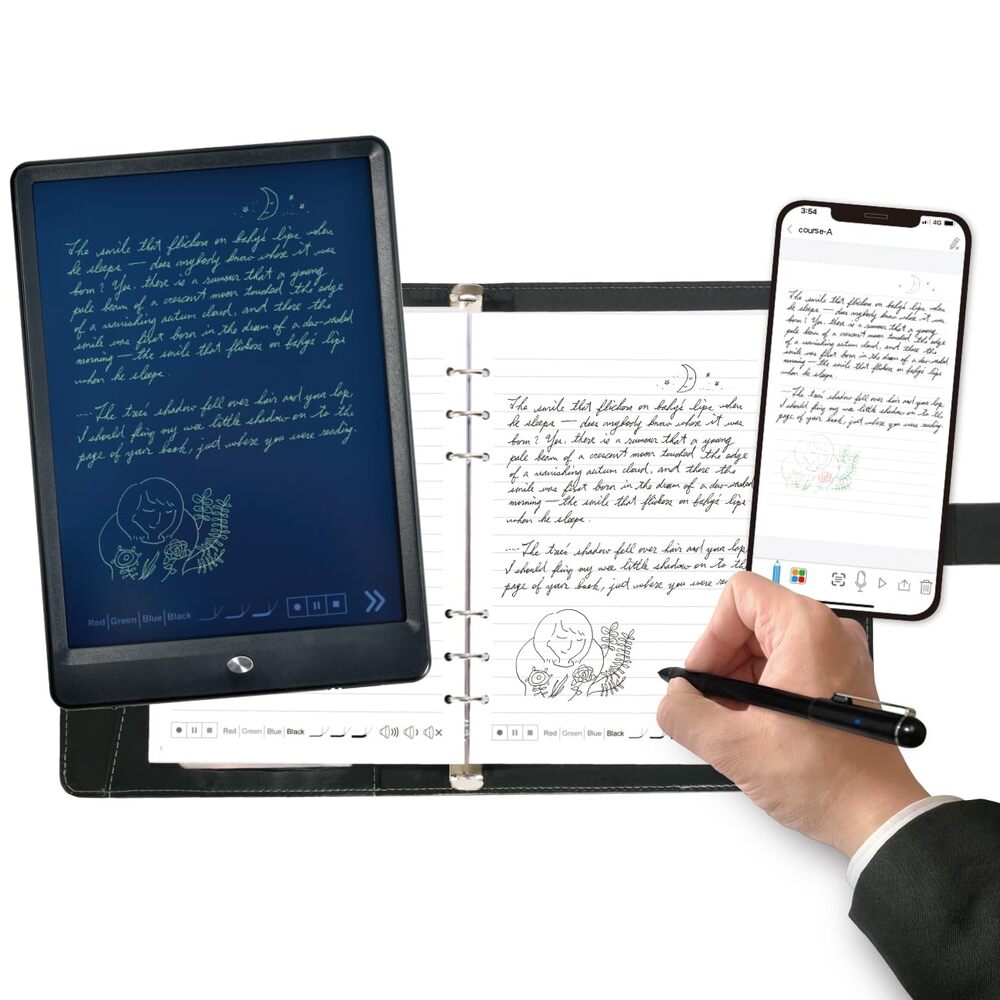 The smile that flickers on baby's lips when
he sleeps — does anybody know where it was
born? Yes, there is a rumour that a young
pale beam of a crescent moon touched the edge
of a vanishing autum cloud, and there the
smile was first born in the dream of a dew-washed
morning — the smile that flickers on baby's lips
when he sleeps.
.... The tree's shadow fell over hair and your lap,
I should fling my wee little shadow on to the
page of your book, just where you were reading.
Red | Green | Blue | Black
The smile that flickers on baby's lips when
he sleeps — does anybody know where it was
born? Yes, there is a rumour that a young
pale beam of a crescent moon touched the edge
of a vanishing autum cloud, and there the
smile was first born in the dream of a dew-washed
morning — the smile that flickers on baby's lips
when he sleeps.
.... The tree's shadow fell over hair and your lap,
I should fling my wee little shadow on to the
page of your book, just where you were
Red | Green | Blue | Black
Red | Green | Blue | Black
3:54
4G
course-A
The smile that flickers on baby's lips when
he sleeps — does anybody know where it was
born? Yes, there is a rumour that a young
pale beam of a crescent moon touched the edge
of a vanishing autum cloud, and there the
smile was first born in the dream of a dew-washed
morning — the smile that flickers on baby's lips
when he sleeps.
.... The tree's shadow fell over hair and your lap,
I should fling my wee little shadow on to the
page of your book, just where you were reading.